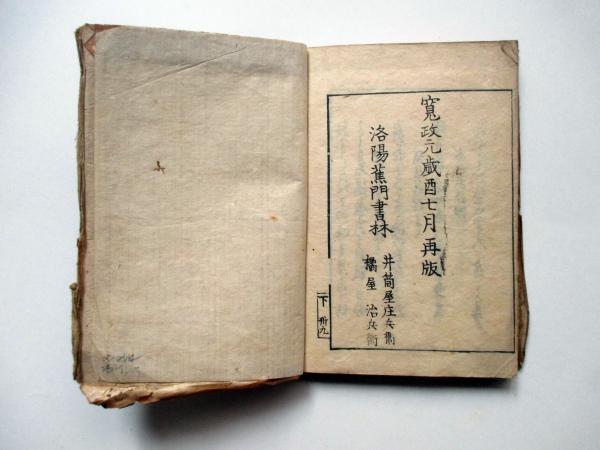 寛政元歳酉七月再版
洛陽蕉門書林
井筒屋庄兵衞
橘屋治兵衞
下 卅九